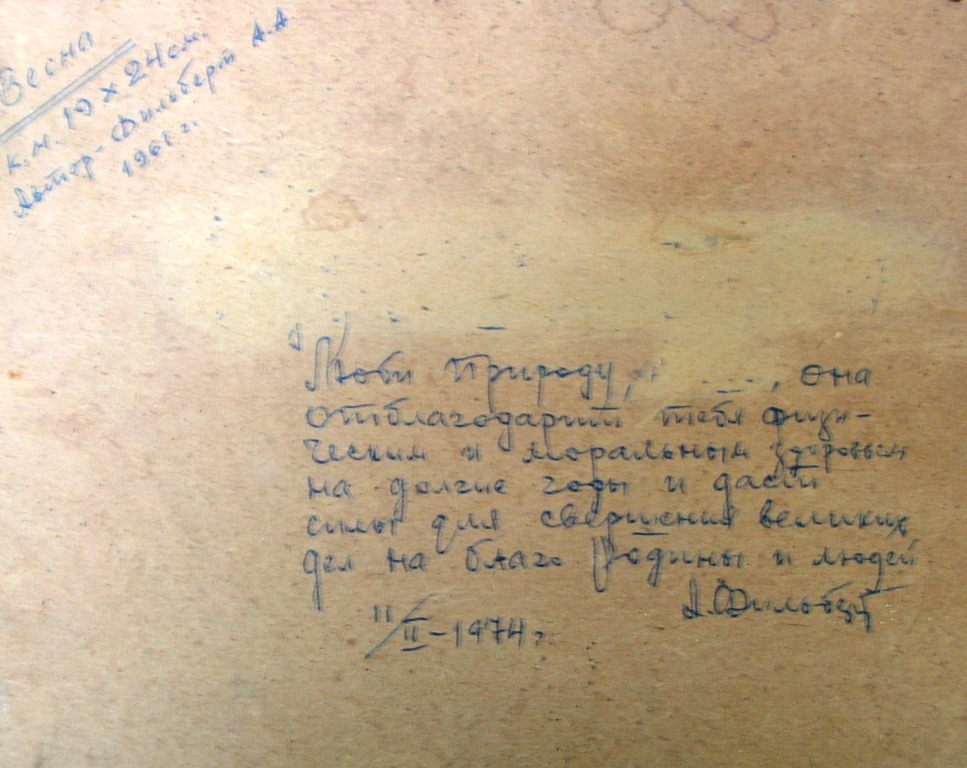 Весна
к.м. 19 х 24 см.
Автор - Фильберт А.А.
1961 г.
Люби природу, , она
отблагодарит тебя физи-
ческим и моральным здоровьем
на долгие годы и даст
силы для свершения великих
дел на благо Родины и людей
А. Фильберт
11/II - 1974 г.